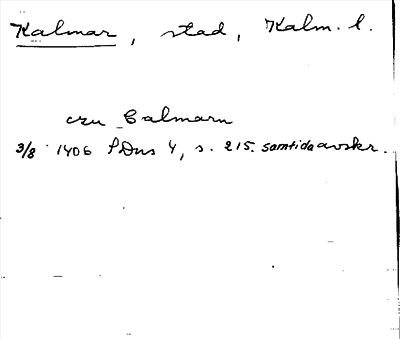 Kalmar, stad, Kalm. l.
czu Calmarn
3/8 1406 SDns 4, s. 215. samtida avskr.